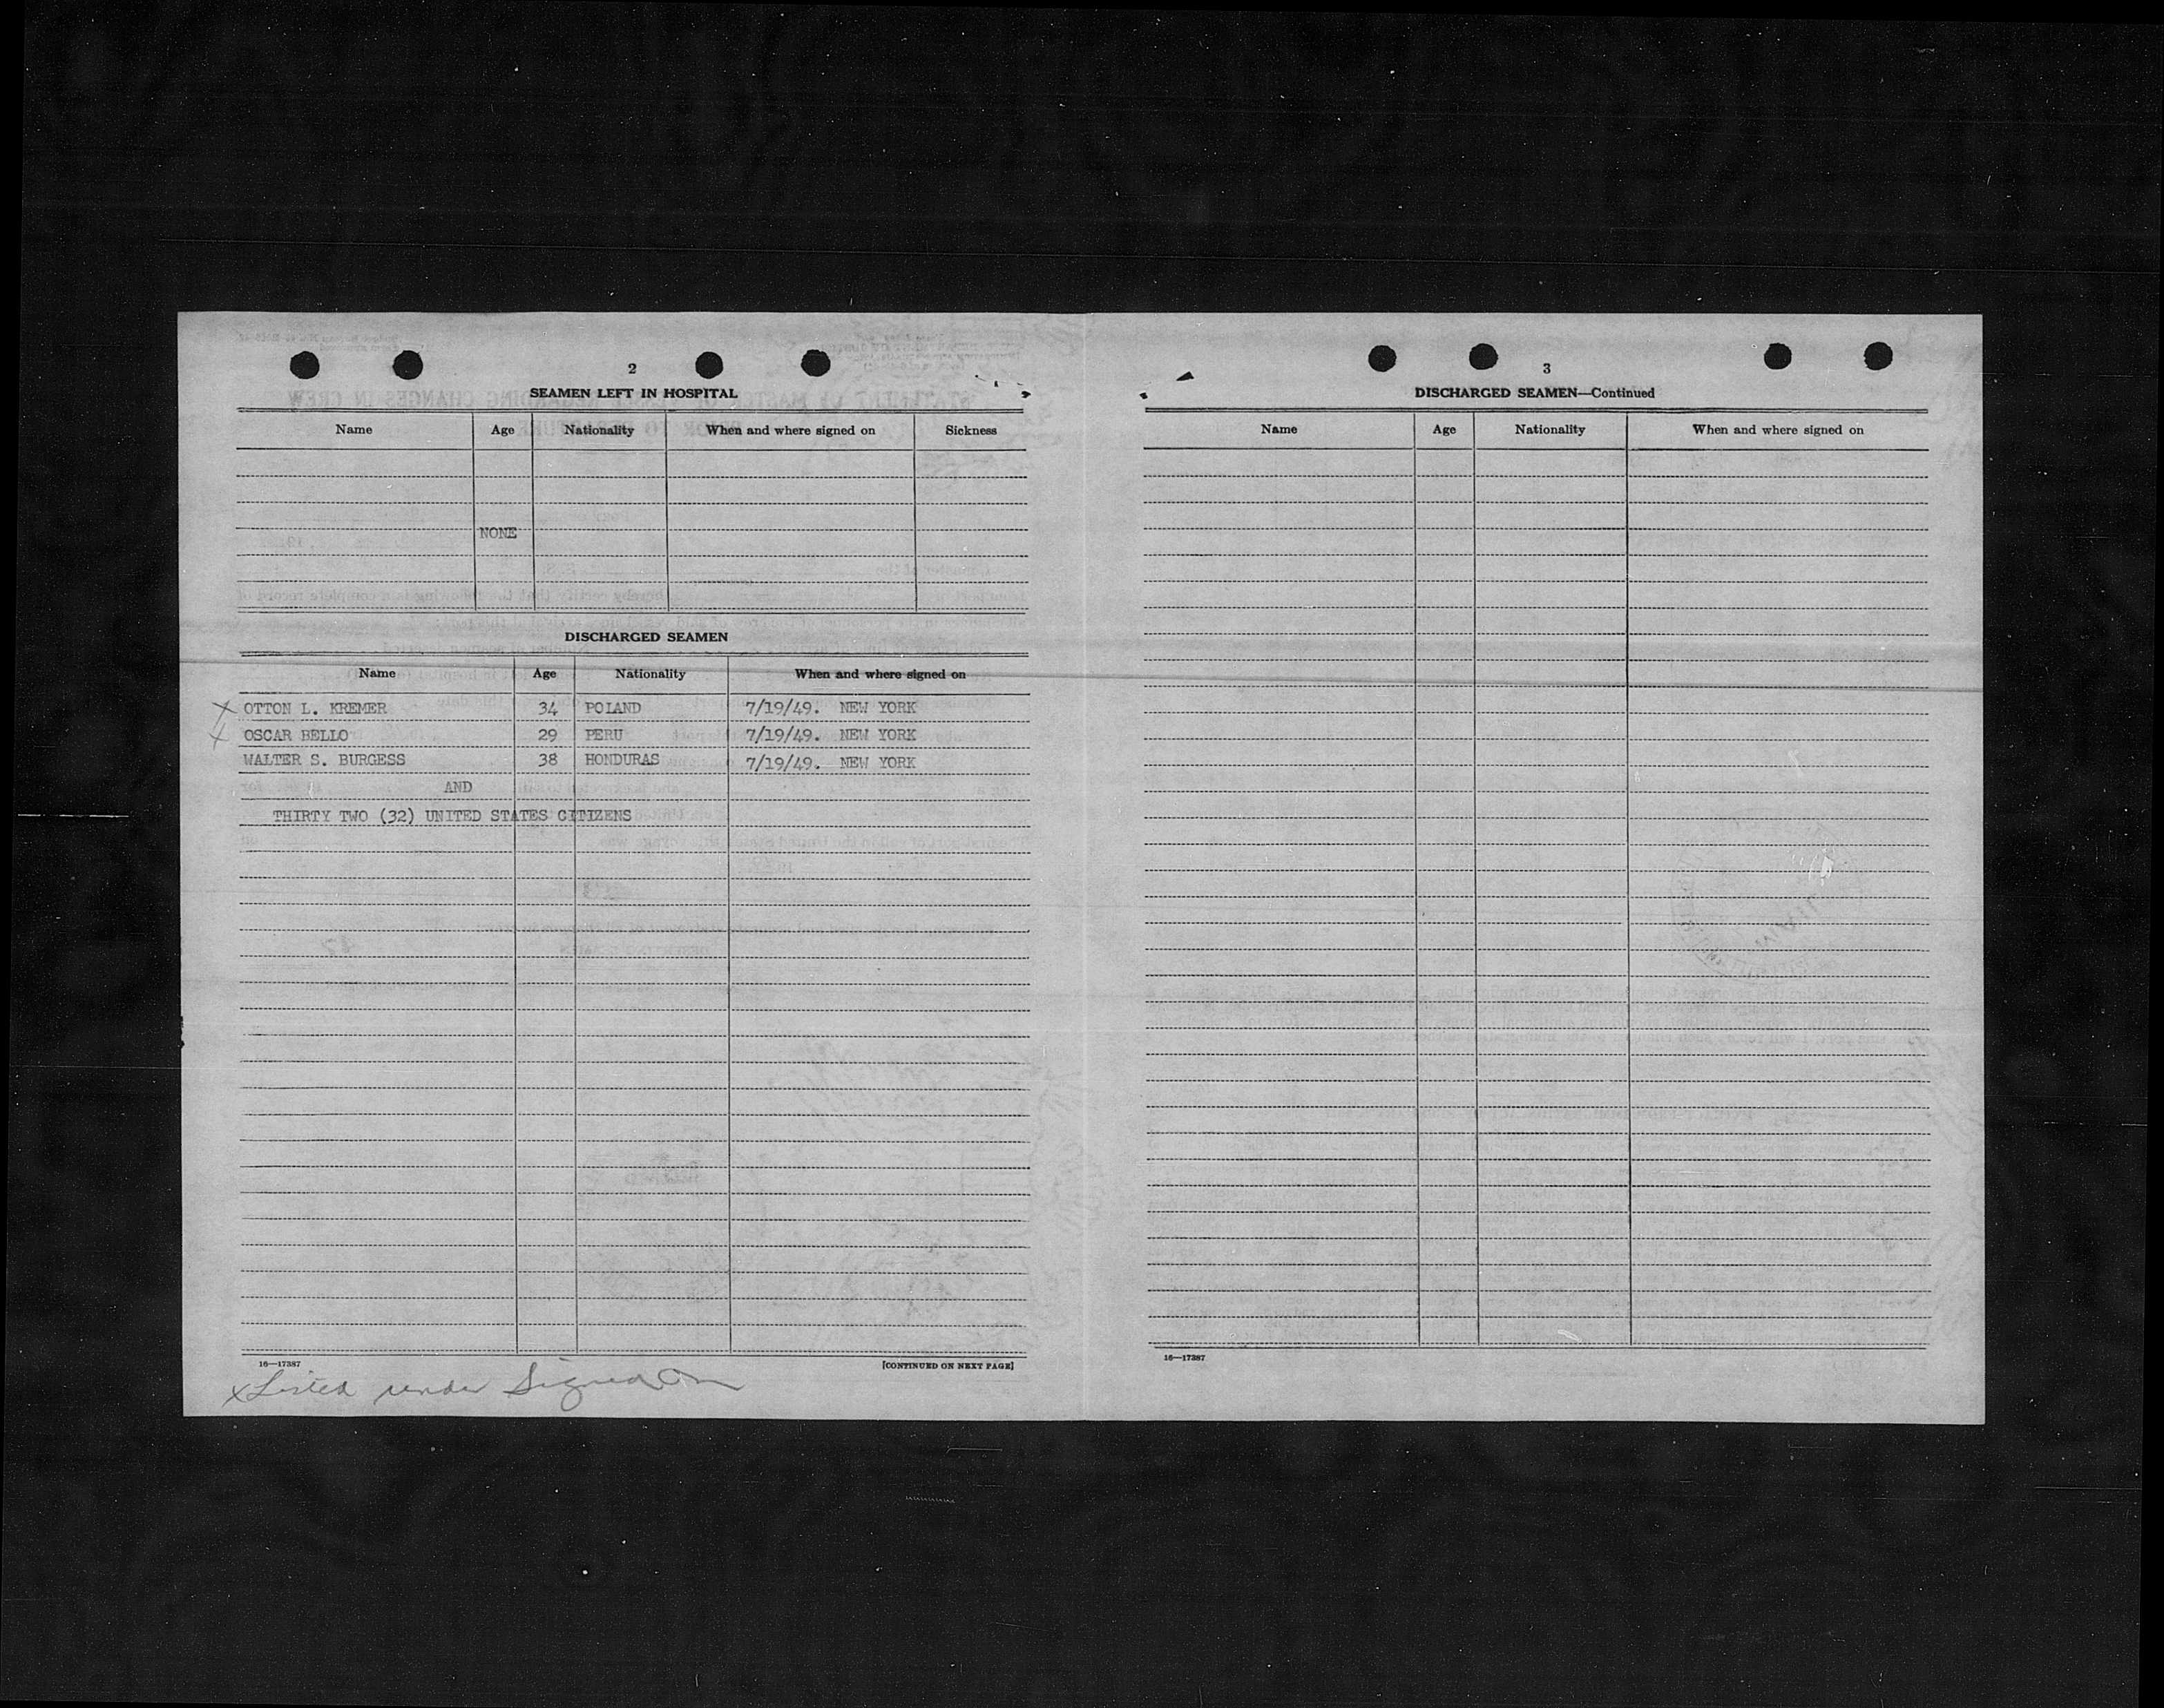 2
SEAMEN LEFT IN HOSPITAL
Name Age Nationality When and where signed on Sickness
NONE
DISCHARGED SEAMEN
Name Age Nationality When and where signed on
X OTTON L. KREMER 34 POLAND 7/19/49. NEW YORK
X OSCAR BELLO 29 PERU 7/19/49. NEW YORK
WALTER S. BURGESS 38 HONDURAS 7/19/49. NEW YORK
AND
THIRTY TWO (32) UNITED STATES CITIZENS
16—17387 [CONTINUED ON NEXT PAGE]
x Listed under Signed On
3
DISCHARGED SEAMEN—Continued
Name Age Nationality When and where signed on
16—17387